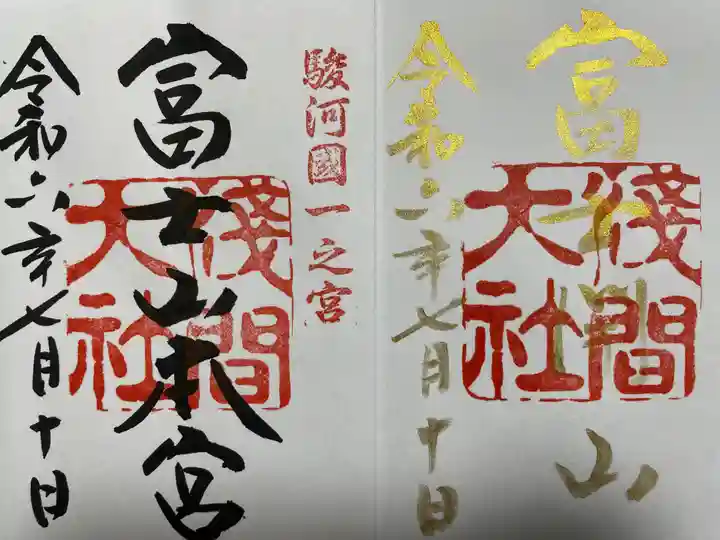 富士開山
淺間
大社
令和六年七月十日
駿河國一之宮
富士山本宮
淺間
大社
令和六年七月十日